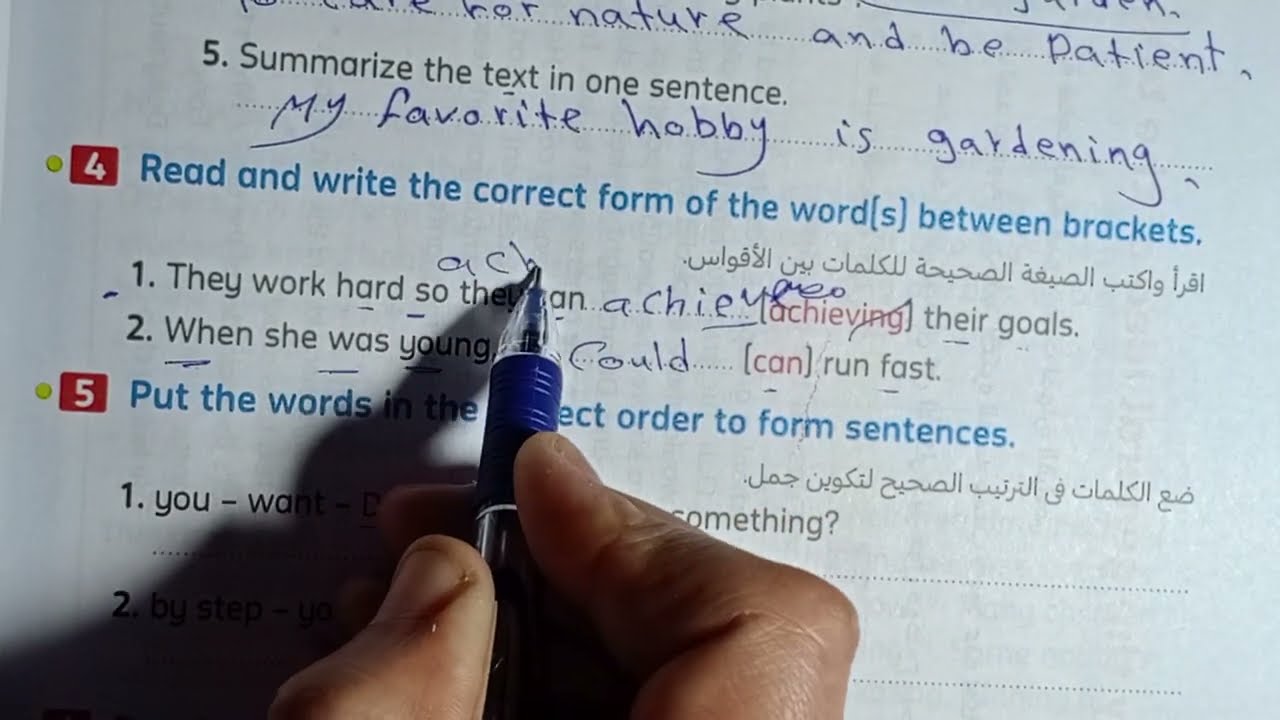 care for nature and be patient.
5. Summarize the text in one sentence.
My favorite hobby is gardening.
4 Read and write the correct form of the word(s) between brackets.
اقرأ واكتب الصيغة الصحيحة للكلمات بين الأقواس.
ach
1. They work hard so they can achieve (achieving) their goals.
2. When she was young, could (can) run fast.
5 Put the words in the ect order to form sentences.
ضع الكلمات في الترتيب الصحيح لتكوين جمل.
1. you – want – something?
2. by step –